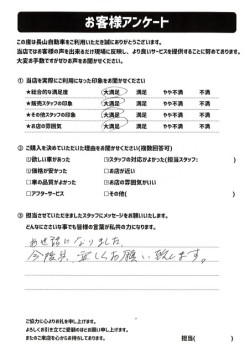 お客様アンケート
この度は長山自動車をご利用いただき誠にありがとうございます。
当店ではお客様の声を出来るだけ現場に反映し、より良いサービスを提供することに努めております。
大変お手数ですがぜひお声をお聞かせください。
① 当店を実際にご利用になった印象をお聞かせください
★総合的な満足度 大満足 満足 やや不満 不満
★販売スタッフの印象 大満足 満足 やや不満 不満
★その他スタッフの印象 大満足 満足 やや不満 不満
★お店の雰囲気 大満足 満足 やや不満 不満
② ご購入を決めていただいた理由をお聞かせください(複数回答可)
□欲しい車があった □スタッフの対応がよかった(担当スタッフ: )
□価格が安かった □お店が近い
□車の品質がよかった □お店の雰囲気がいい
□アフターサービス □その他( )
③ 担当させていただきましたスタッフにメッセージをお願いいたします。
どんなにささいな事でも皆様の言葉が私共の力になります。
お世話になりました。
今後共、宜しくお願い致します。
ご協力に心よりお礼を申し上げます。
よろしくお引き立てご愛顧のほどお願い申し上げます。
またのご来店を心からお待ちしております。 担当( )